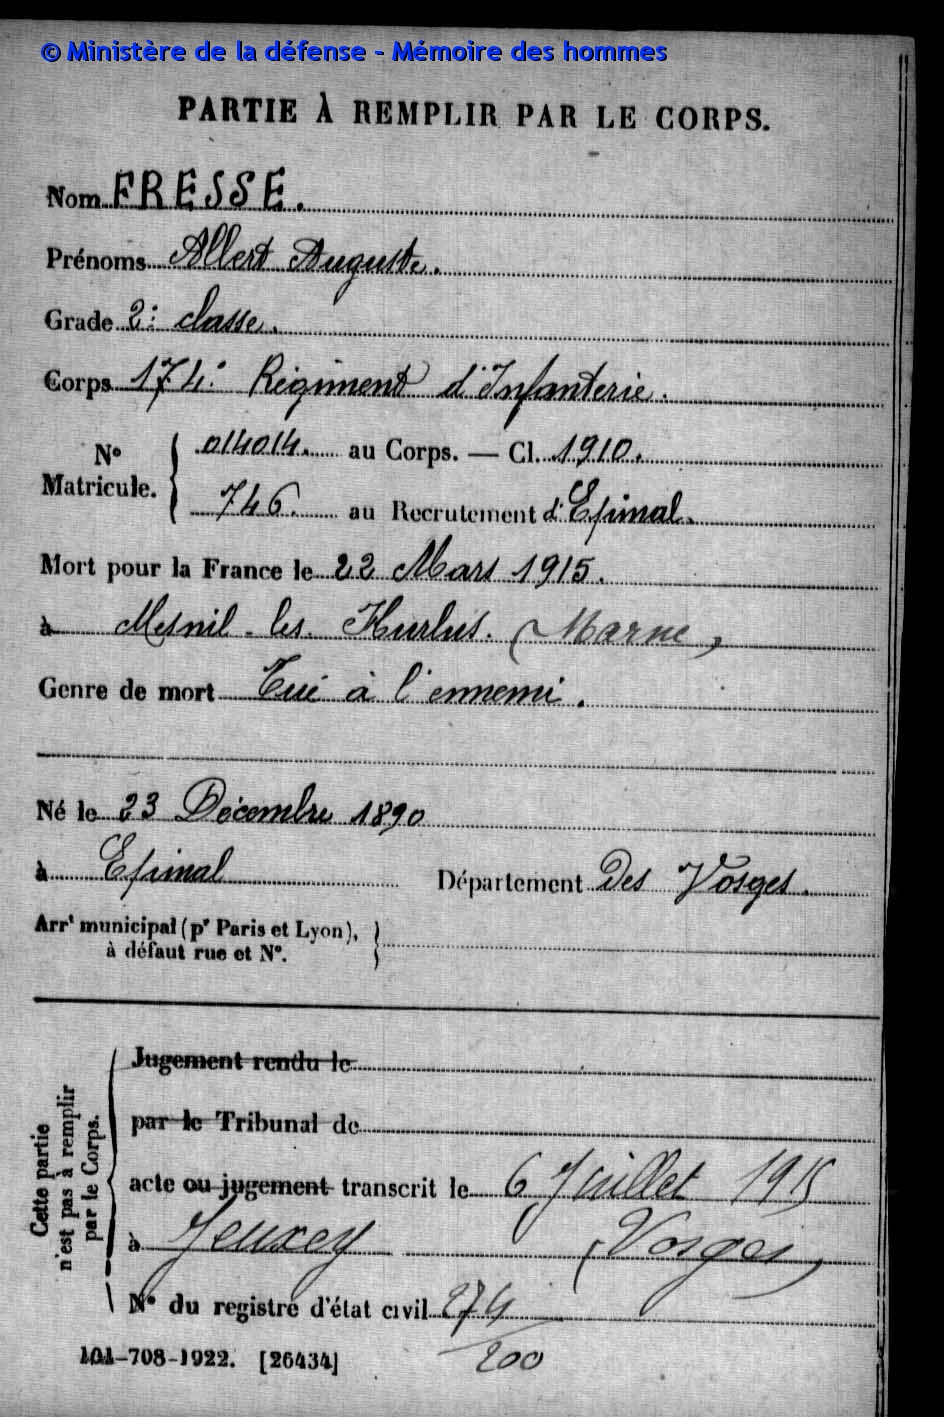 © Ministère de la défense - Mémoire des hommes
PARTIE À REMPLIR PAR LE CORPS.
Nom FRESSE.
Prénoms Albert Auguste.
Grade 2e classe.
Corps 174e Régiment d'Infanterie.
No Matricule. { 014014. au Corps. — Cl. 1910.
746. au Recrutement d'Epinal.
Mort pour la France le 22 Mars 1915.
à Mesnil-les-Hurlus. (Marne)
Genre de mort Tué à l'ennemi.
Né le 23 Décembre 1890
à Epinal Département Des Vosges.
Arrt municipal (pr Paris et Lyon), à défaut rue et No. }
Cette partie n'est pas à remplir par le Corps. {
Jugement rendu le
par le Tribunal de
acte ou jugement transcrit le 6 Juillet 1915
à Jeuxey (Vosges)
No du registre d'état civil 274
200
101-708-1922. [26434]